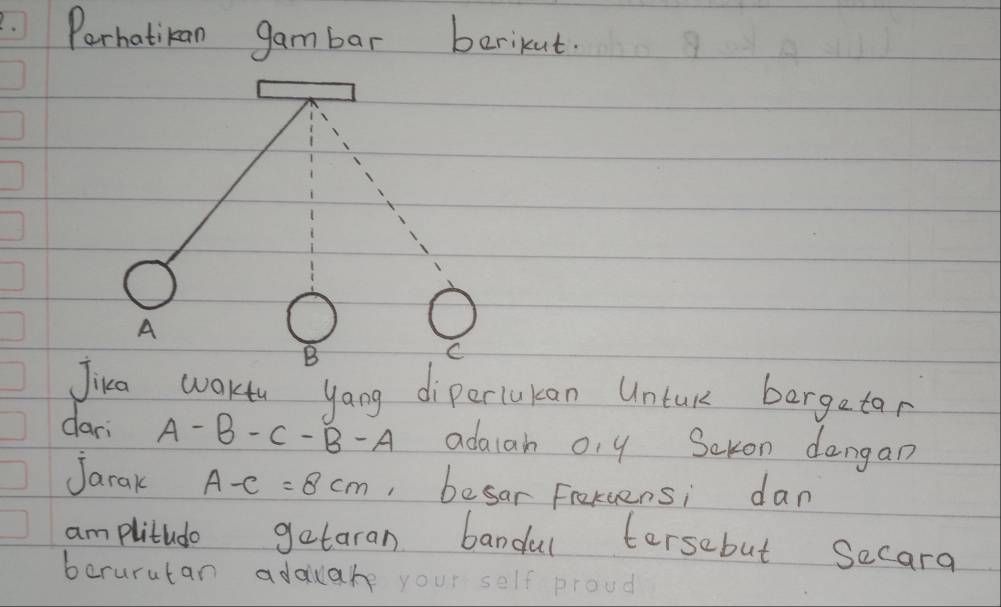 2. Perhatikan gambar berikut.
A
B
C
Jika waktu yang diperlukan Untuk bergetar
dari A - B - C - B - A adalah 0,4 Sekon dengan
Jarak A-C = 8 cm, besar Frekuensi dan
amplitudo getaran bandul tersebut Secara
berurutan adalah your self proud